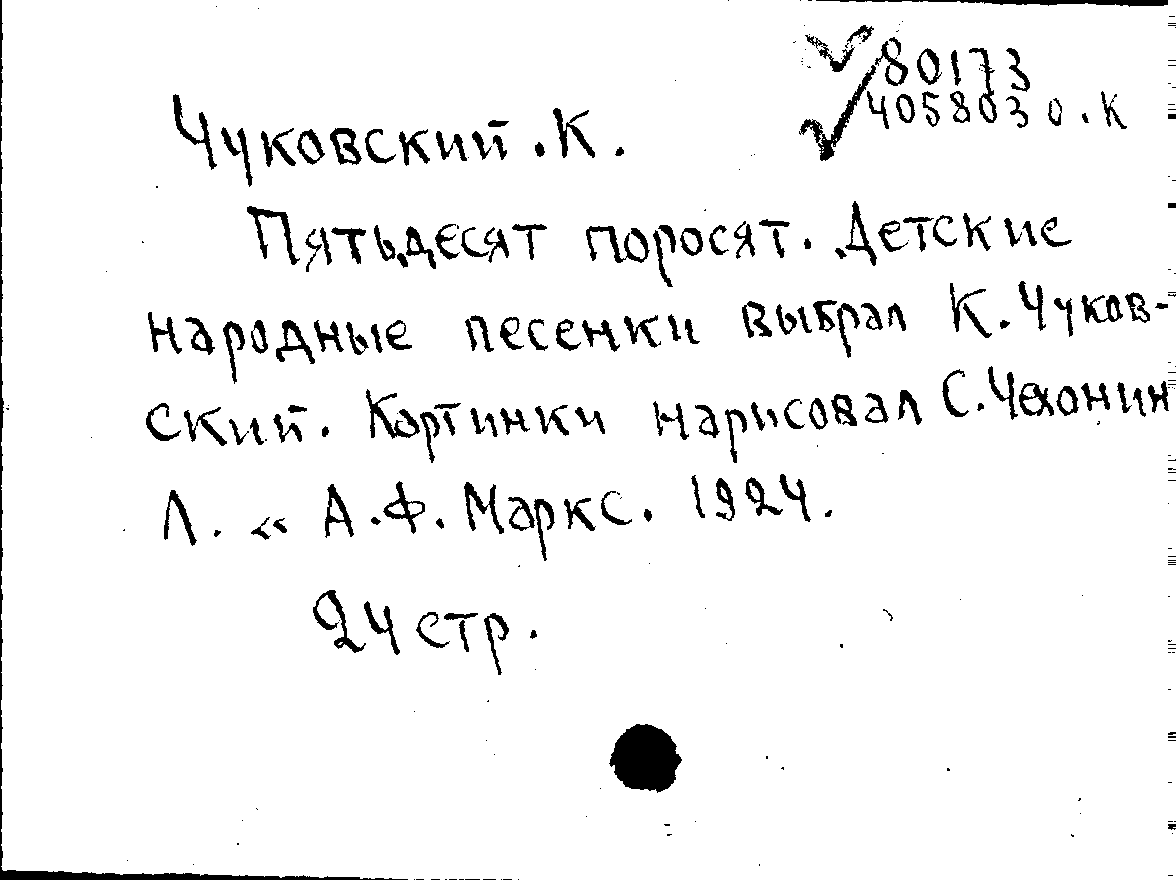 ✓80173
✓405803 о.к
Чуковский.К.
Пятьдесят поросят. Детские
народные песенки выбрал К. Чуков-
ский. Картинки нарисовал С. Чехонин
Л. « А.Ф. Маркс. 1924.
24 стр.